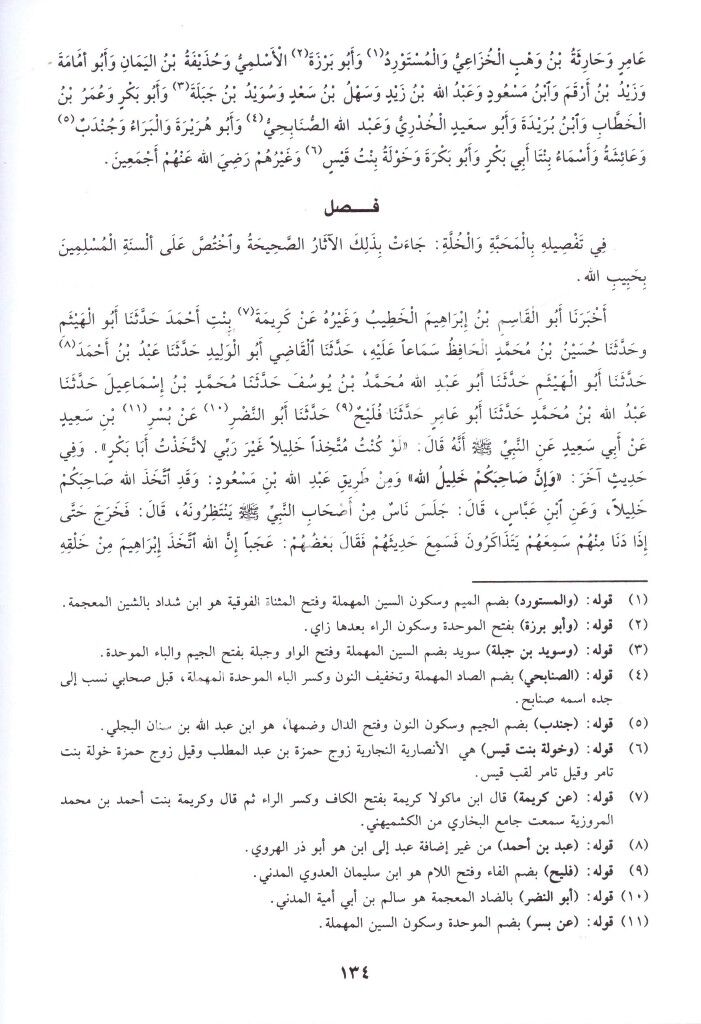 عَامِرٍ وَحَارِثَةُ بْنُ وَهْبٍ الْخُزَاعِيُّ وَالْمُسْتَوْرِدُ(١) وَأَبُو بَرْزَةَ(٢) الْأَسْلَمِيُّ وَحُذَيْفَةُ بْنُ الْيَمَانِ وَأَبُو أُمَامَةَ
وَزَيْدُ بْنُ أَرْقَمَ وَٱبْنُ مَسْعُودٍ وَعَبْدُ الله بْنُ زَيْدٍ وَسَهْلُ بْنُ سَعْدٍ وَسُوَيْدُ بْنُ جَبَلَةَ(٣) وَأَبُو بَكْرٍ وَعُمَرُ بْنُ
الْخَطَّابِ وَٱبْنُ بُرَيْدَةَ وَأَبُو سَعِيدٍ الْخُدْرِيُّ وَعَبْدِ الله الصُّنَابِحِيُّ(٤) وَأَبُو هُرَيْرَةَ وَالْبَرَاءُ وَجُنْدَبُ(٥)
وَعَائِشَةُ وَأَسْمَاءُ بِنْتَا أَبِي بَكْرٍ وَأَبُو بَكْرَةَ وَخَوْلَةُ بِنْتُ قَيْسٍ(٦) وَغَيْرُهُمْ رَضِيَ الله عَنْهُمْ أَجْمَعِينَ.
فــصل
فِي تَفْضِيلِهِ بِالْمَحَبَّةِ وَالْخُلَّةِ: جَاءَتْ بِذَلِكَ الآثَارُ الصَّحِيحَةُ وٱخْتُصَّ عَلَى أَلْسِنَةِ الْمُسْلِمِينَ
بِحَبِيبِ الله.
أَخْبَرَنَا أَبُو الْقَاسِمِ بْنُ إِبْرَاهِيمَ الْخَطِيبُ وَغَيْرُهُ عَنْ كَرِيمَةَ(٧) بِنْتِ أَحْمَدَ حَدَّثَنَا أَبُو الْهَيْثَمِ
وحَدَّثَنَا حُسَيْنُ بْنُ مُحَمَّدٍ الْحَافِظُ سَمَاعاً عَلَيْهِ، حَدَّثَنَا الْقَاضِي أَبُو الْوَلِيدِ حَدَّثَنَا عَبْدُ بْنُ أَحْمَدَ(٨)
حَدَّثَنَا أَبُو الْهَيْثَمِ حَدَّثَنَا أَبُو عَبْدِ الله مُحَمَّدُ بْنُ يُوسُفَ حَدَّثَنَا مُحَمَّدُ بْنُ إِسْمَاعِيلَ حَدَّثَنَا
عَبْدُ الله بْنُ مُحَمَّدٍ حَدَّثَنَا أَبُو عَامِرٍ حَدَّثَنَا فُلَيْحٌ(٩) حَدَّثَنَا أَبُو النَّضْرِ(١٠) عَنْ بُسْرِ(١١) بْنِ سَعِيدٍ
عَنْ أَبِي سَعِيدٍ عَنِ النَّبِيِّ ﷺ أَنَّهُ قَالَ: «لَوْ كُنْتُ مُتَّخِذاً خَلِيلاً غَيْرَ رَبِّي لاتَّخَذْتُ أَبَا بَكْرٍ». وَفِي
حَدِيثٍ آخَرَ: «وَإِنَّ صَاحِبَكُمْ خَلِيلُ الله» وَمِنْ طَرِيقِ عَبْدِ الله بْنِ مَسْعُودٍ: وَقَدِ ٱتَّخَذَ الله صَاحِبَكُمْ
خَلِيلاً، وَعَنِ ٱبْنِ عَبَّاسٍ، قَالَ: جَلَسَ نَاسٌ مِنْ أَصْحَابِ النَّبِيِّ ﷺ يَنْتَظِرُونَهُ، قَالَ: فَخَرَجَ حَتَّى
إِذَا دَنَا مِنْهُمْ سَمِعَهُمْ يَتَذَاكَرُونَ فَسَمِعَ حَدِيثَهُمْ فَقَالَ بَعْضُهُمْ: عَجَباً إِنَّ الله ٱتَّخَذَ إِبْرَاهِيمَ مِنْ خَلْقِهِ
(١) قوله: (والمستورد) بضم الميم وسكون السين المهملة وفتح المثناة الفوقية هو ابن شداد بالشين المعجمة.
(٢) قوله: (وأبو برزة) بفتح الموحدة وسكون الراء بعدها زاي.
(٣) قوله: (وسويد بن جبلة) سويد بضم السين المهملة وفتح الواو وجبلة بفتح الجيم والباء الموحدة.
(٤) قوله: (الصنابحي) بضم الصاد المهملة وتخفيف النون وكسر الباء الموحدة المهملة، قبل صحابي نسب إلى
جده اسمه صنابح.
(٥) قوله: (جندب) بضم الجيم وسكون النون وفتح الدال وضمها، هو ابن عبد الله بن سنان البجلي.
(٦) قوله: (وخولة بنت قيس) هي الأنصارية النجارية زوج حمزة بن عبد المطلب وقيل زوج حمزة خولة بنت
تامر وقيل تامر لقب قيس.
(٧) قوله: (عن كريمة) قال ابن ماكولا كريمة بفتح الكاف وكسر الراء ثم قال وكريمة بنت أحمد بن محمد
المروزية سمعت جامع البخاري من الكشميهني.
(٨) قوله: (عبد بن أحمد) من غير إضافة عبد إلى ابن هو أبو ذر الهروي.
(٩) قوله: (فليح) بضم الفاء وفتح اللام هو ابن سليمان العدوي المدني.
(١٠) قوله: (أبو النضر) بالضاد المعجمة هو سالم بن أبي أمية المدني.
(١١) قوله: (عن بسر) بضم الموحدة وسكون السين المهملة.
١٣٤